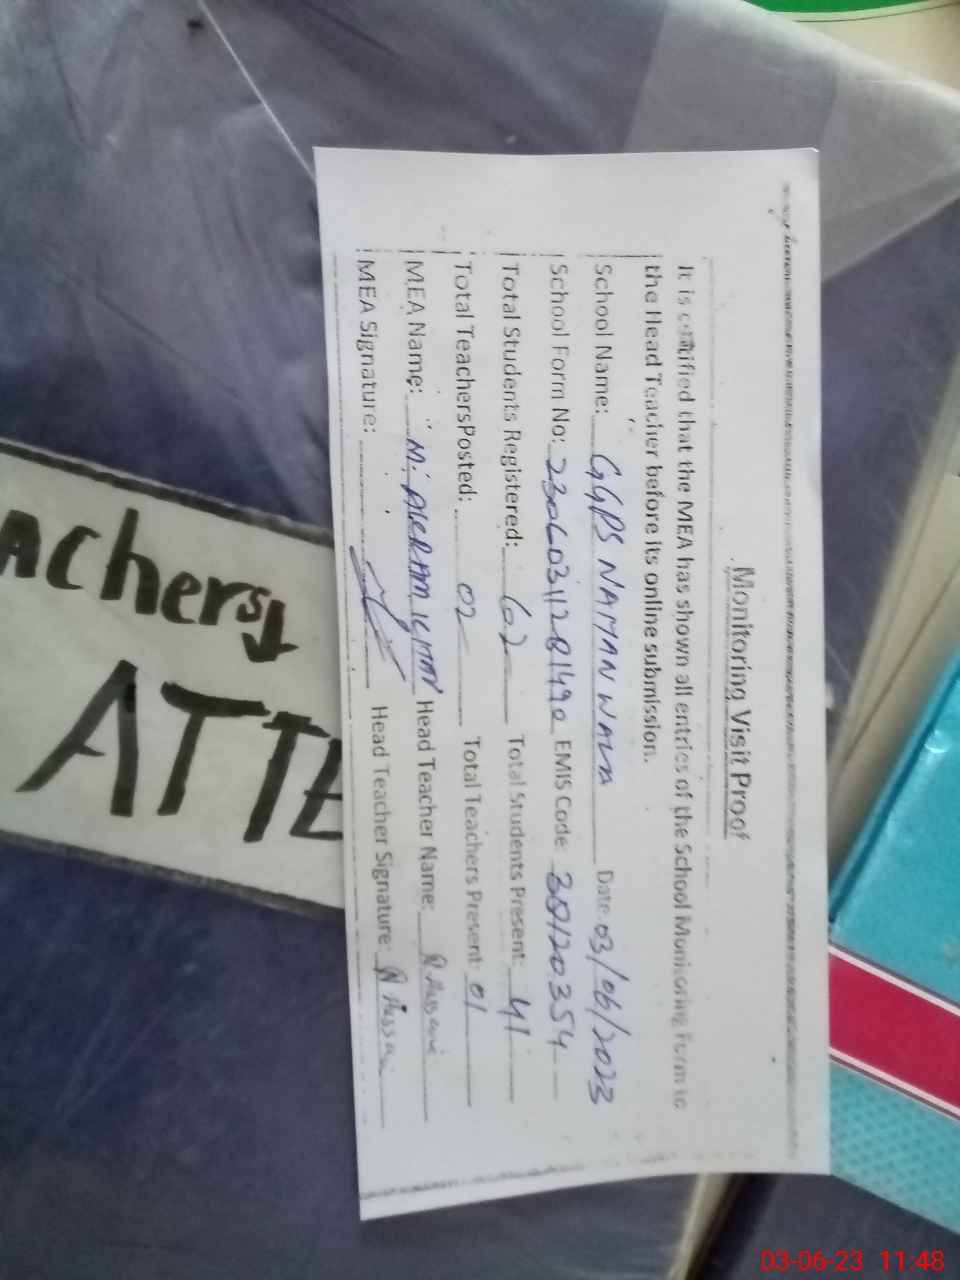 Monitoring Visit Proof
It is certified that the MEA has shown all entries of the School Monitoring Form to
the Head Teacher before its online submission.
School Name: GGPS NAMAN WALA Date 03/06/2023
School Form No: EMIS Code 30120354
Total Students Registered: 62 Total Students Present: 41
Total TeachersPosted: 02 Total Teachers Present: 01
MEA Name: M. AKRAM Head Teacher Name:
MEA Signature: Head Teacher Signature:
achers
ATTE
03-06-23 11:48